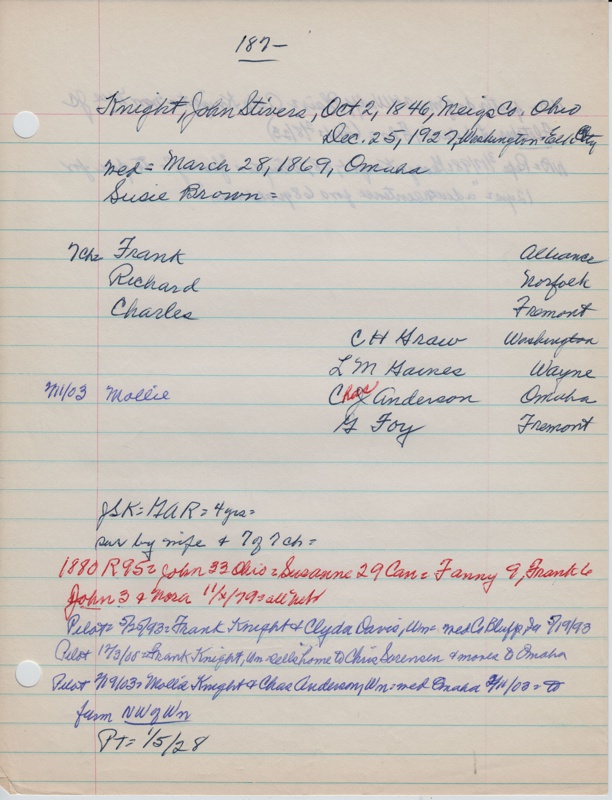 187-
Knight, John Stivers, Oct 2, 1846, Meigs Co, Ohio
Dec. 25, 1927, Washington = Elk City
med = March 28, 1869, Omaha
Susie Brown =
7ch= Frank Alliance
Richard Norfolk
Charles Fremont
C H Graw Washington
L M Gaines Wayne
2/11/03 Mollie Chas J Anderson Omaha
G Foy Fremont
JSK = GAR = 4 yrs =
sur by wife & 7 of 7 ch =
1880 R95 = John 33 Ohio = Susanne 29 Can = Fanny 9, Frank 6
John 3 & Nora 11/x/79 = all Neb
Pilot = 5/25/93 = Frank Knight & Clyda Davis, Wn = med Co Bluffs, Ia 5/19/93
Pilot 12/3/00 = Frank Knight, Wn sells home to Chris Sorensen & moves to Omaha
Pilot 2/19/03 = Mollie Knight & Chas Anderson, Wn = med Omaha 2/11/03 = to
farm NW of Wn
PT = 1/5/28